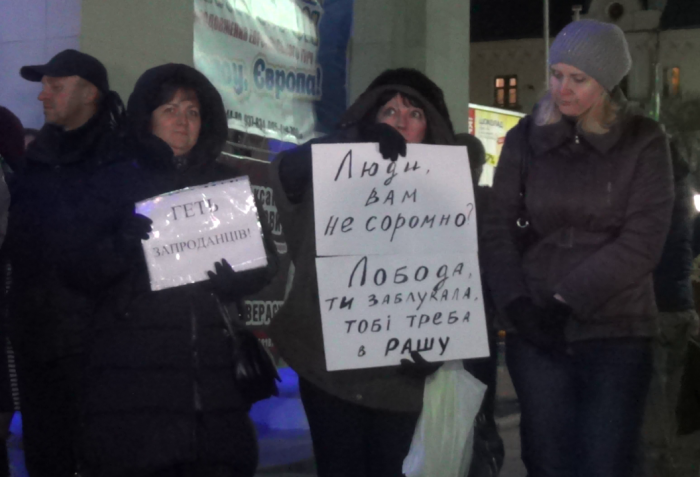 Європа!
ГЕТЬ
ЗАПРОДАНЦІВ!
Люди,
ВАМ
НЕ СОРОМНО?
Лобода,
ТИ ЗАБЛУКАЛА,
ТОБІ ТРЕБА
В РАШУ